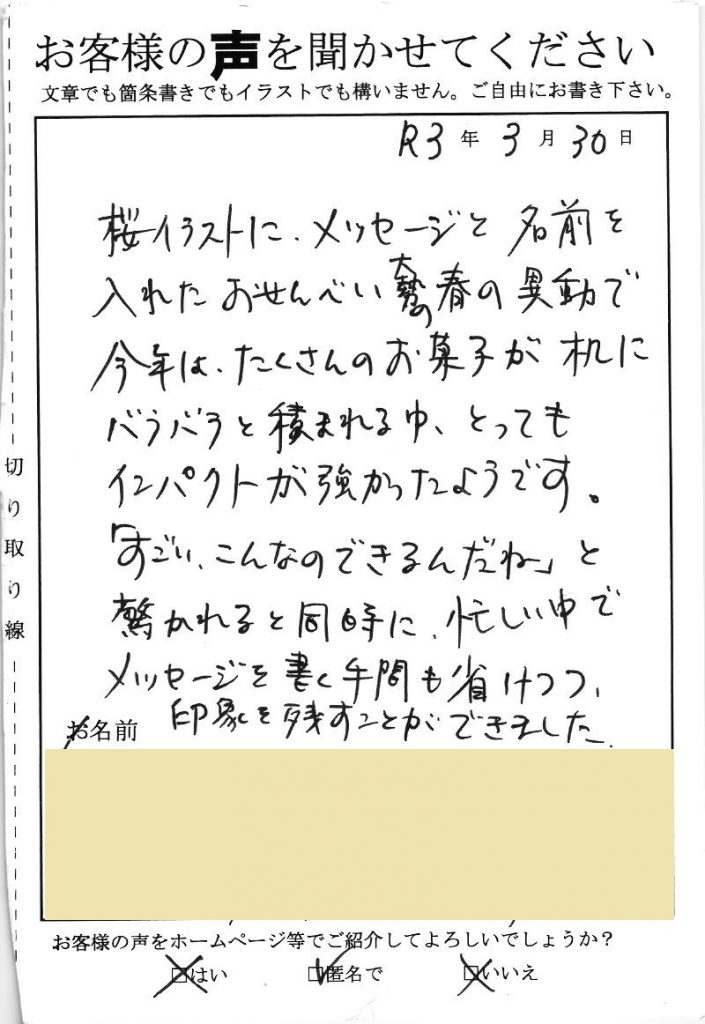 お客様の声を聞かせてください
文章でも箇条書きでもイラストでも構いません。ご自由にお書き下さい。
R3年3月30日
桜イラストに、メッセージと名前を
入れたおせんべい大勢の春の異動で
今年は、たくさんのお菓子が机に
バラバラと積まれる中、とっても
インパクトが強かったようです。
「すごい、こんなのできるんだね」と
驚かれると同時に、忙しい中で
メッセージを書く手間も省けつつ、
印象を残すことができました。
お名前
お客様の声をホームページ等でご紹介してよろしいでしょうか?
□はい □匿名で □いいえ
切り取り線